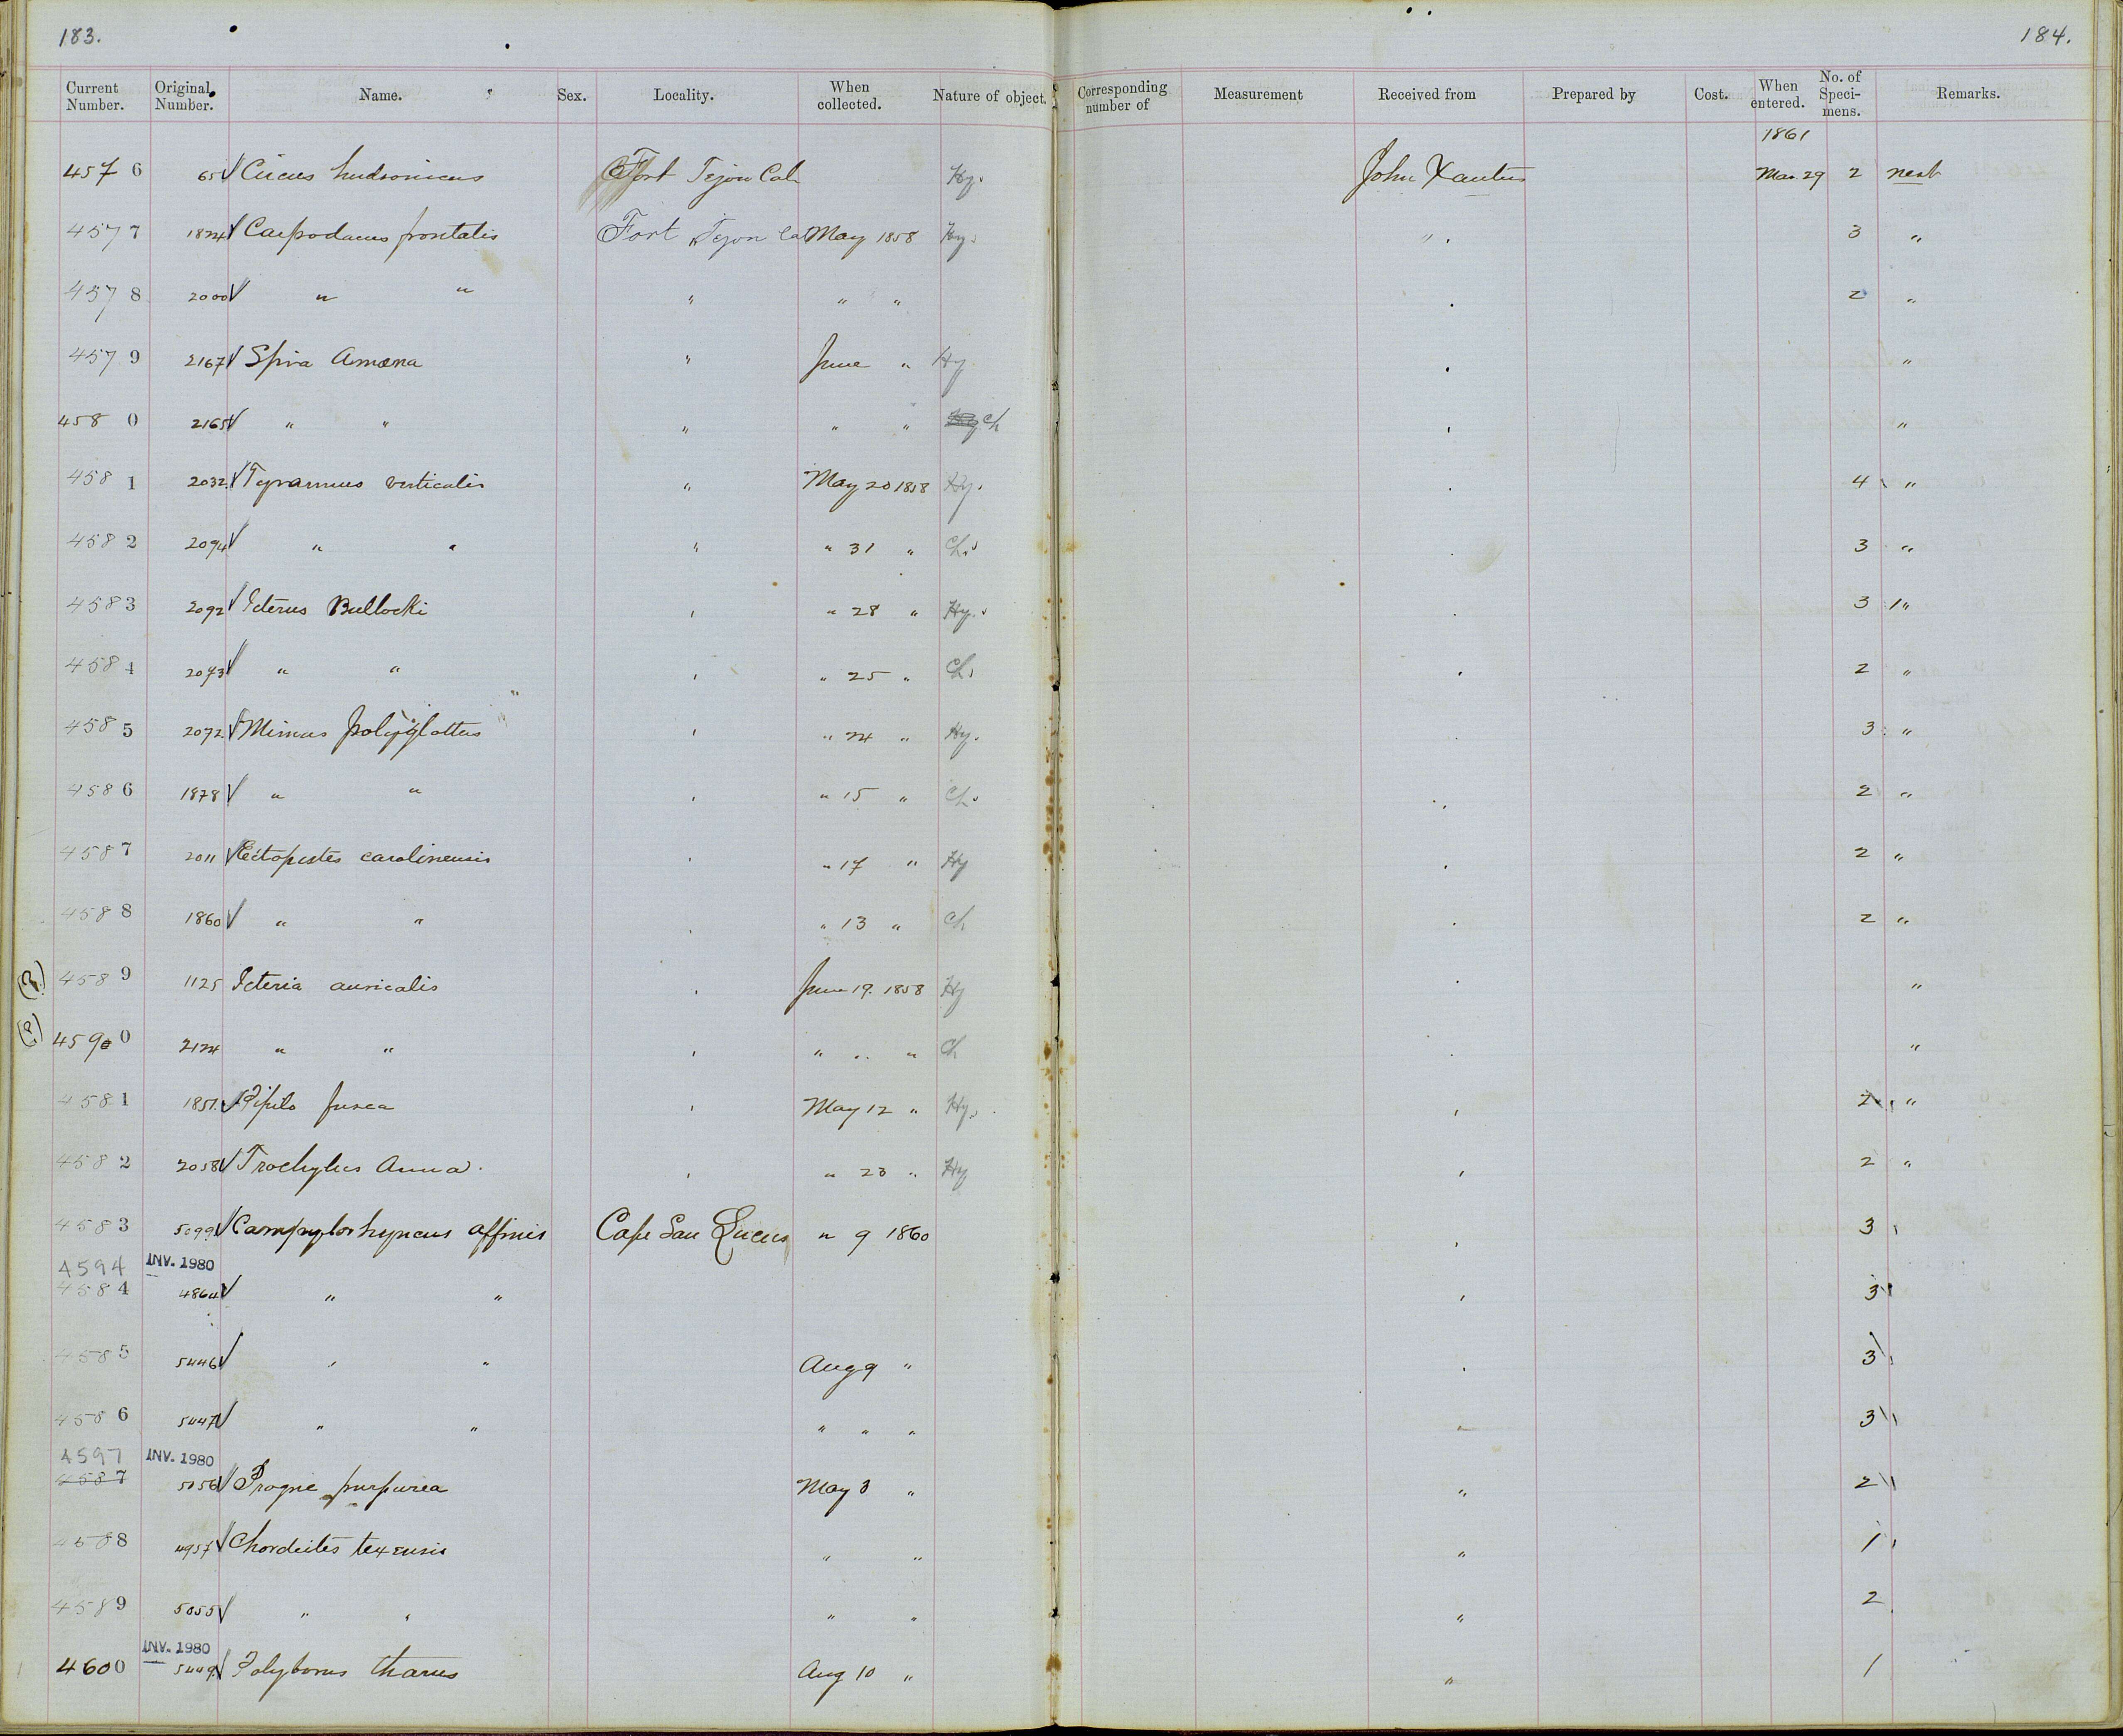 183. 184.
Current Number. Original Number. Name. Sex. Locality. When collected. Nature of object. Corresponding number of Measurement Received from Prepared by Cost. When entered. No. of Speci-mens. Remarks.
1861
4576 65 Circus hudsonicus Fort Tejon Cal Hy. John Xantus Mar 29 2 nest
4577 1824 Carpodacus frontalis Fort Tejon Cal May 1858 Hy. " 3 "
4578 2000 " " " " " 2 "
4579 2167 Spiza Amoena " June " Hy "
4580 2165 " " " " " Ch "
4581 2032 Tyrannus verticalis " May 20 1858 Hy. 4 "
4582 2094 " " " " 31 " Ch. 3 "
4583 2092 Icterus Bullocki " " 28 " Hy. 3 "
4584 2073 " " " " 25 " Ch. 2 "
4585 2072 Mimus polyglottus " " 24 " Hy. 3 "
4586 1878 " " " " 15 " Ch. 2 "
4587 2011 Ectopistes carolinensis " " 17 " Hy 2 "
4588 1860 " " " " 13 " Ch 2 "
(?) 4589 1125 Icteria auricalis " June 19. 1858 Hy "
(?) 4590 2124 " " " " " " Ch "
4581 1851. Pipilo fusca " May 12 " Hy. 2 "
4582 2058 Trochylus Anna. " " 23 " Hy 2 "
4583 5099 Campylorhyncus affinis Cape San Lucus " 9 1860 3
4594 INV. 1980
4584 4864 " " 3
4585 5446 " " Aug 9 " 3
4586 5447 " " " " " 3
4597 INV. 1980
4587 5056 Progne purpurea May 3 " " 2
4588 4957 Chordeites texensis " " " 1
4589 5055 " " " " " 2
INV. 1980
4600 5449 Polyborus tharus Aug 10 " " 1